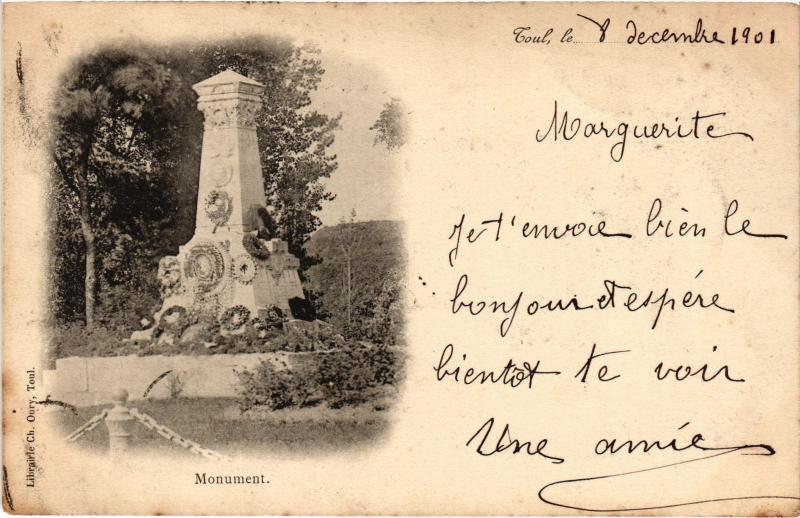 Toul, le 8 decembre 1901
Marguerite
Je t'envoie bien le
bonjour et espére
bientot te voir
Une amie
Monument.
Librairie Ch. Oury, Toul.